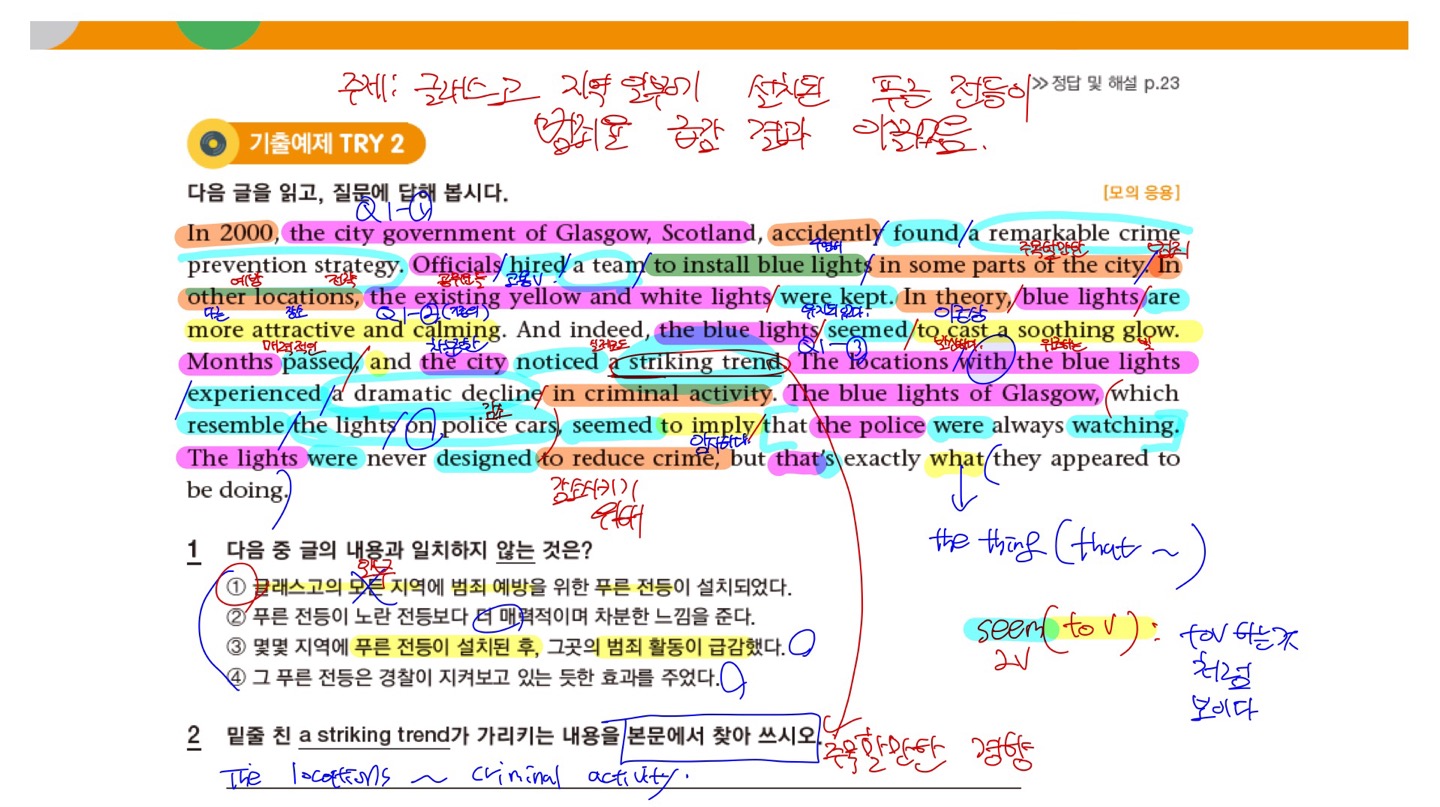 주제: 글래스고 지역 일부에 설치된 푸른 전등이
>> 정답 및 해설 p.23
범죄율 급감 결과 이끌었음.
기출예제 TRY 2
다음 글을 읽고, 질문에 답해 봅시다.
[모의 응용]
Q1-①
In 2000, the city government of Glasgow, Scotland, accidently found a remarkable crime
주목할만한
prevention strategy. Officials hired a team to install blue lights in some parts of the city. In
예방 전략 공무원들 고용V
other locations, the existing yellow and white lights were kept. In theory, blue lights are
다른 장소 Q1-② 유지되었다.
more attractive and calming. And indeed, the blue lights seemed to cast a soothing glow.
매력적인 차분한 실제로도 빛
Q1-③
Months passed, and the city noticed a striking trend. The locations with the blue lights
experienced a dramatic decline in criminal activity. The blue lights of Glasgow, which
감소
resemble the lights on police cars, seemed to imply that the police were always watching.
암시하다
The lights were never designed to reduce crime, but that's exactly what they appeared to
be doing.
감소시키기
위해
the thing (that ~)
1 다음 중 글의 내용과 일치하지 않는 것은?
① 글래스고의 모든 지역에 범죄 예방을 위한 푸른 전등이 설치되었다.
② 푸른 전등이 노란 전등보다 더 매력적이며 차분한 느낌을 준다.
③ 몇몇 지역에 푸른 전등이 설치된 후, 그곳의 범죄 활동이 급감했다.
④ 그 푸른 전등은 경찰이 지켜보고 있는 듯한 효과를 주었다.
seem (to V) : toV 하는것
2V
처럼
보이다
2 밑줄 친 a striking trend가 가리키는 내용을 본문에서 찾아 쓰시오.
주목할만한 경향
The locations ~ criminal activity.